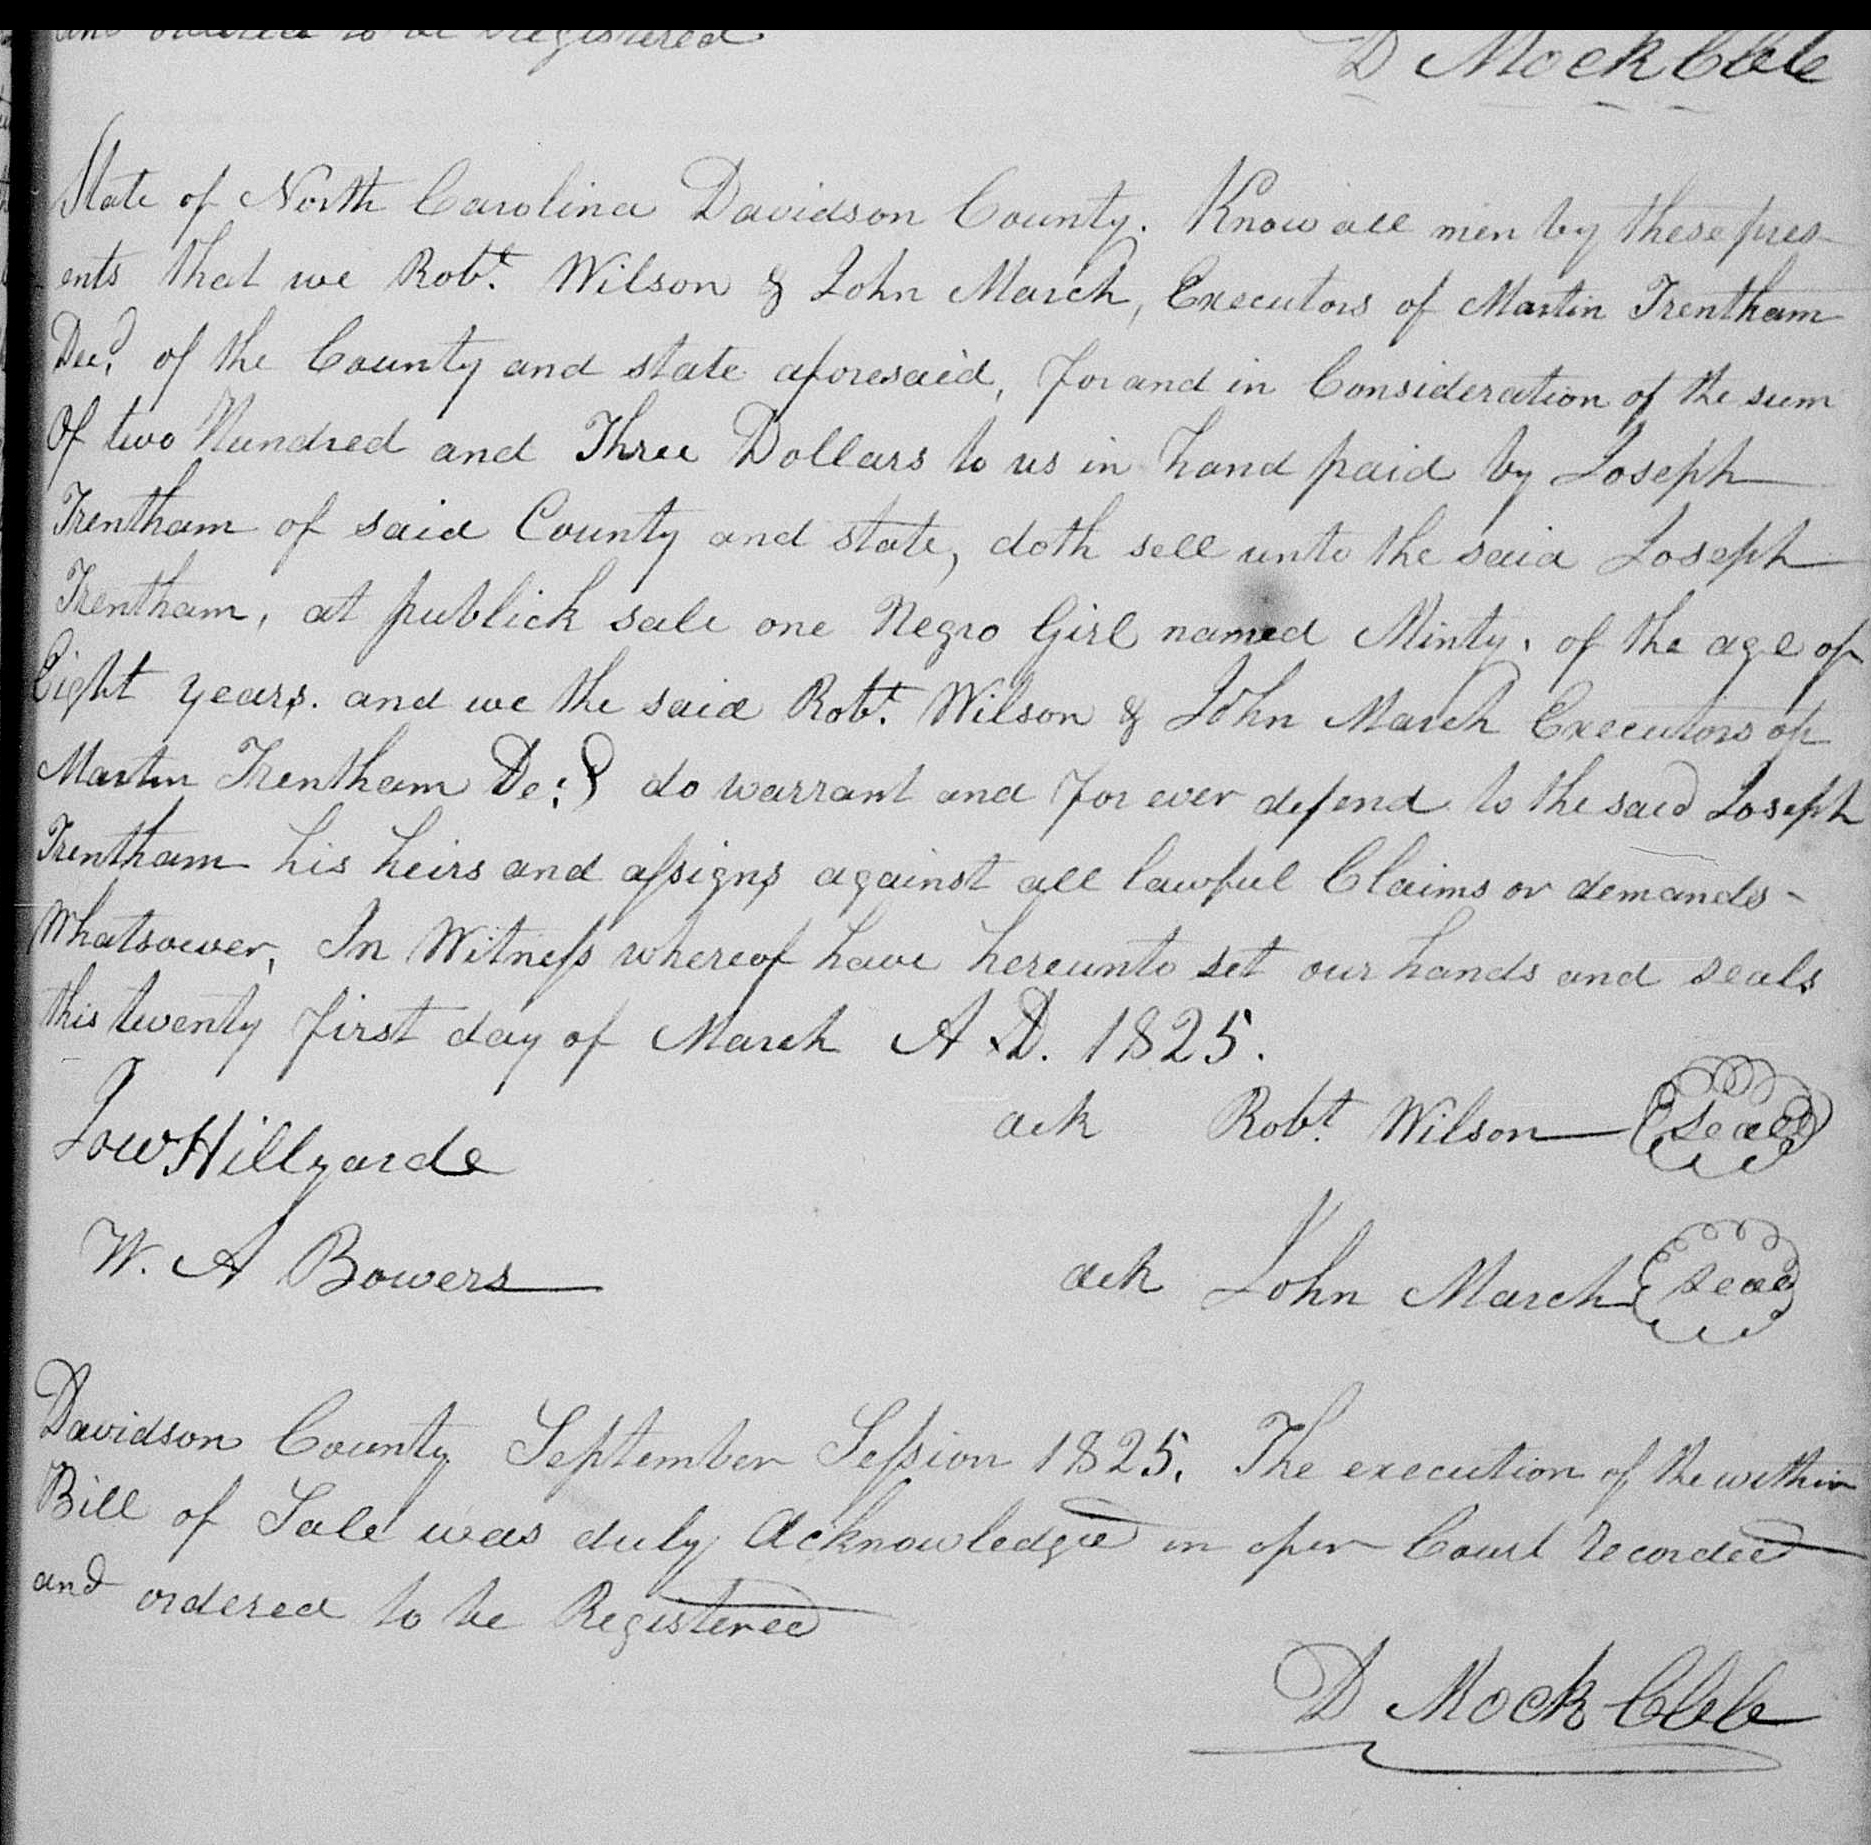 and ordered to be Registered
D Mock CCC
State of North Carolina Davidson County. Know all men by these pres
ents that we Robt. Wilson & John March, Executors of Martin Trentham
Decd. of the County and state aforesaid, for and in Consideration of the sum
Of two Hundred and Three Dollars to us in hand paid by Joseph
Trentham of said County and state, doth sell unto the said Joseph
Trentham, at publick sale one Negro Girl named Minty, of the age of
Eight years. and we the said Robt. Wilson & John March Executors of
Martin Trentham De:d do warrant and for ever defend to the said Joseph
Trentham his heirs and assigns against all lawful Claims or demands -
Whatsoever, In Witness whereof have hereunto set our hands and seals
this twenty first day of March A.D. 1825.
ack Robt. Wilson seal
Hillyarde
W. A Bowers
ack John March seal
Davidson County September Session 1825. The execution of the within
Bill of Sale was duly Acknowledged in open Court recorded
and ordered to be Registered
D Mock CCC